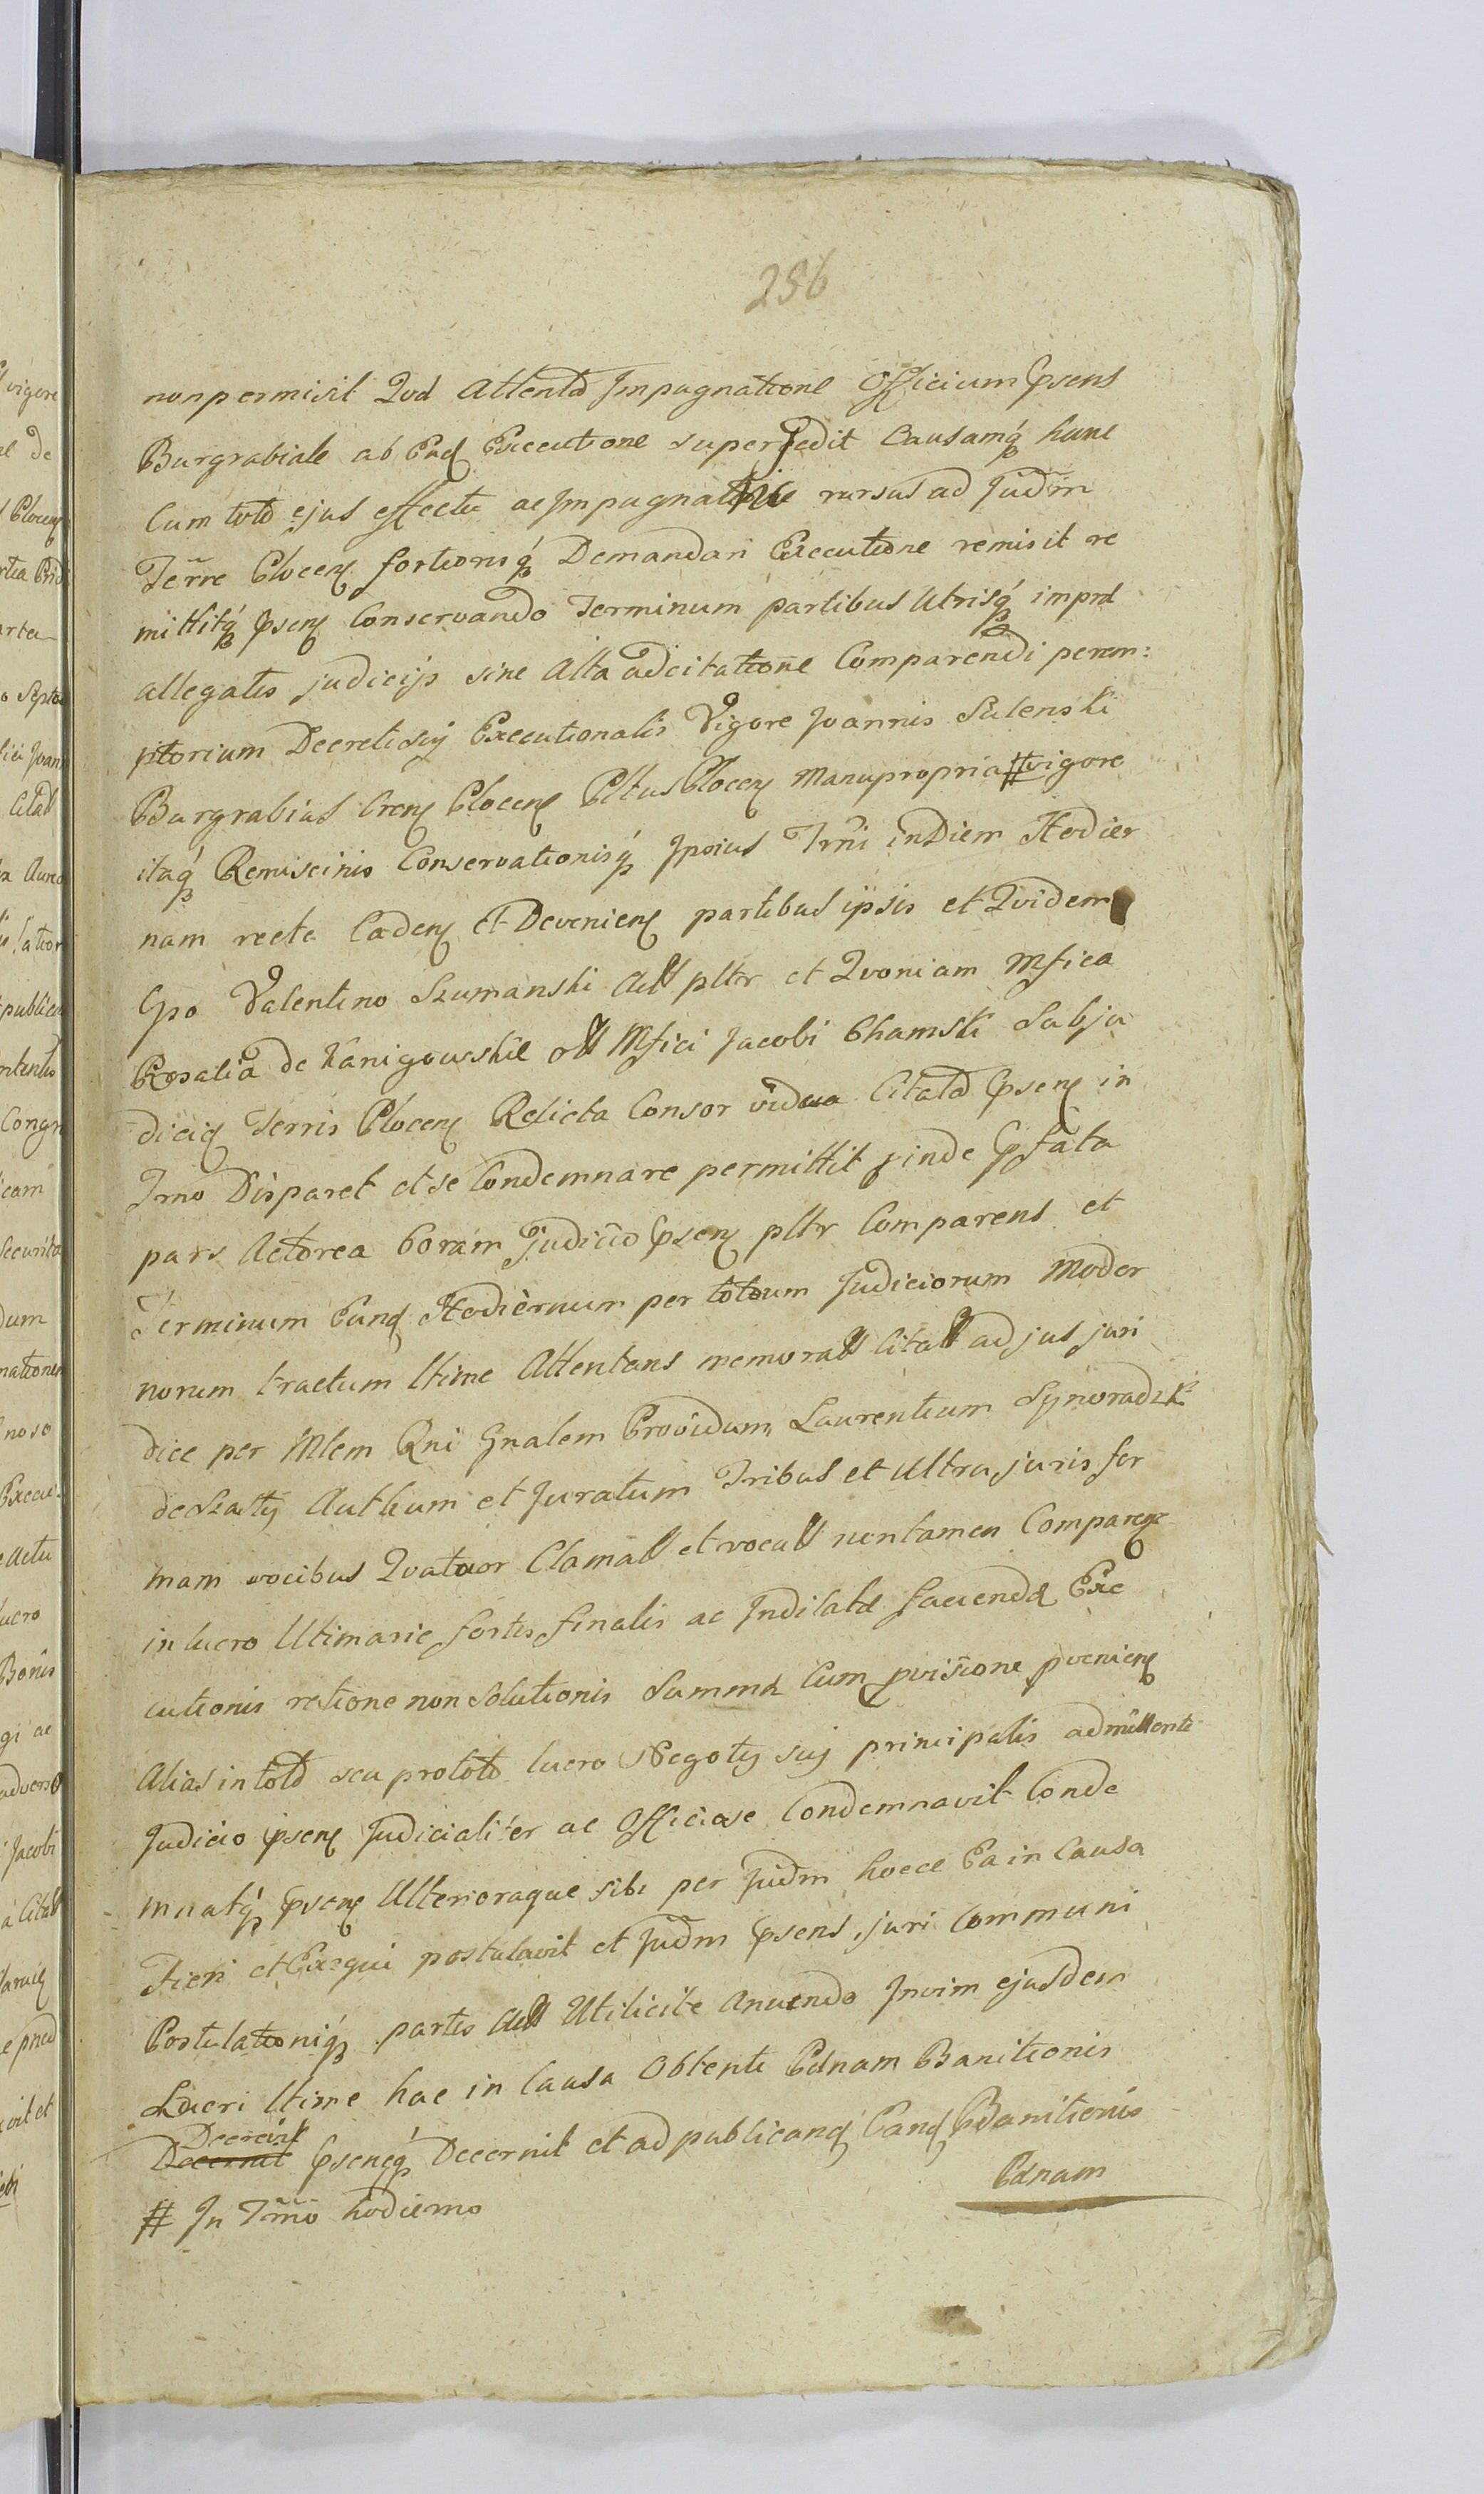 286
non permisit Qvd Attentã Impugnatione Officium Psens
Burgrabiale ab Ead Executione supersedit Causamq hanc
Cum toto ejus effectu ac Impugnatione rursus ad Judm
Terre Plocen fortiorisq Demandari Executione remisit re
mittitq Psen Conservando Terminum partibus Utrisq impnd
allegatis judicijs sine Alta adcitatione Comparendi perem:
ptorium Decreti sui Executionalis Vigore Joannis Sulenski
Burgrabius Cren Plocen Pltus Plocen Manupropria # vigore
itaq Remiscinis Conservationisq Ipsius Trni in Diem Hodier
nam recte Caden et Devenien partibus ipsis et Qvidem
Gso Valentino Szumanski Act pltr et Qvoniam Mfica
Rosalia de Kanigowskie olt Mfici Jacobi Chamski Subju
dicis Terris Plocen Relicta Consor vidua Citata Psen in
Trno Disparet et se Condemnare permittit proinde Psata
pars Actorea Coram Judicio Psen pltr Comparens et
Terminum Eund Hodiernum per totum Judiciorum Moder
norum tractum ltime Attentans memorat Citat ad jus juri
dice per Mlem Rni Gnalem Providum Laurentium Synoradzki
de Szasty Authum et Juratum Tribus et Ultra juris for
mam vocibus Qvatuor Clamat et vocat nontamen Comparen
in lucro Ultimarie fortis finalis ac Indilatæ faciendæ Exe
cutionis ratione non Solutionis Summæ Cum pvisione pvenien
Alias in toto seu pro toto lucro Negotij sui principalis admittente
Judicio psen Judicialiter ac Officiose Condemnavit Conde
mnatq psen Ulterioraque sibi per Judm hocce Ea in Causa
Fieri et Exequi postulavit et Judm psens juri Communi
Postulationiq partis Act Utilicite Anuendo Invim ejusdem
Lucri ltime hac in Causa Obtenti Pdnam Banitionis
Decrevit
Decernit Pseneq Decernit et ad publicand Eand Banitionis
Pdnam
# In Trmo hodierno